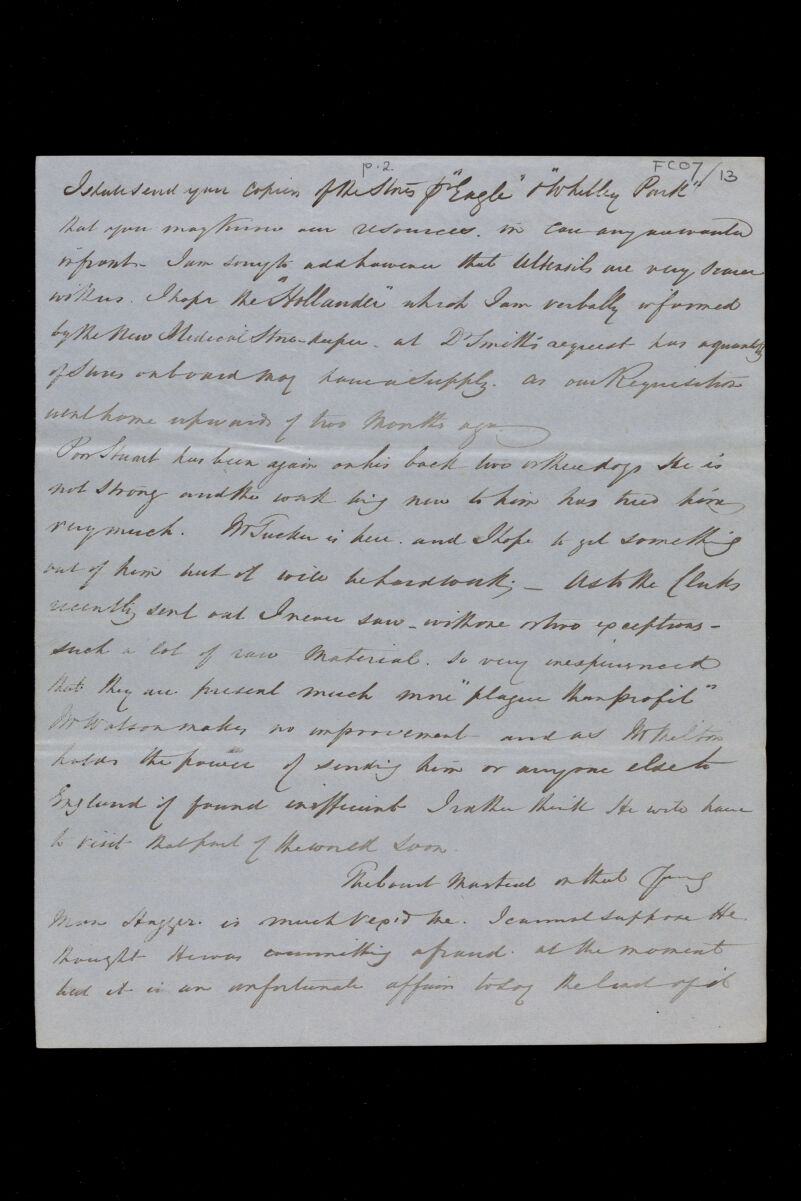 p.2
FC07/13
I shall send you copies of the Stores pr "Eagle" & "Whitley Park"
that you may know our resources. in case any are wanted
in front. I am sorry to add however that Utensils are very scarce
with us. I hope the "Hollander" which I am verbally informed
by the New Medical Store-keeper. at Dr Smith's request has a quantity
of ours on board may have a supply. as our Requisition
went home upwards of two Months ago
Poor Stuart has been again on his back two or three days He is
not strong and the work being new to him has tried him
very much. Mr Tucker is here. and I hope to get something
out of him but it will be hard work; – As to the Clerks
recently sent out I never saw – with one or two exceptions –
such a lot of raw Material. so very inexperienced
that they are present much more "plague than profit"
Mr Watson makes no improvement and as Mr
holds the power of sending him or anyone else to
England if found inefficient I rather think He will have
to visit that part of the world soon.
The Court Martial on that Young
Man Hagger is much vex'd me. I cannot suppose He
thought He was committing a fraud. at the moment
but it is an unfortunate affair to say the least of it